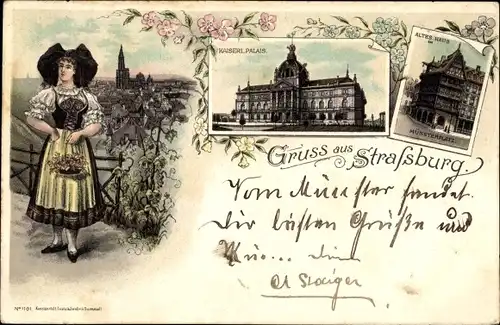 KAISERL. PALAIS.
ALTES HAUS
am
MÜNSTERPLATZ.
Gruss aus Strassburg.
Vom Münster sendet
Dir besten Grüße und
dein
A Staiger
No 1101.